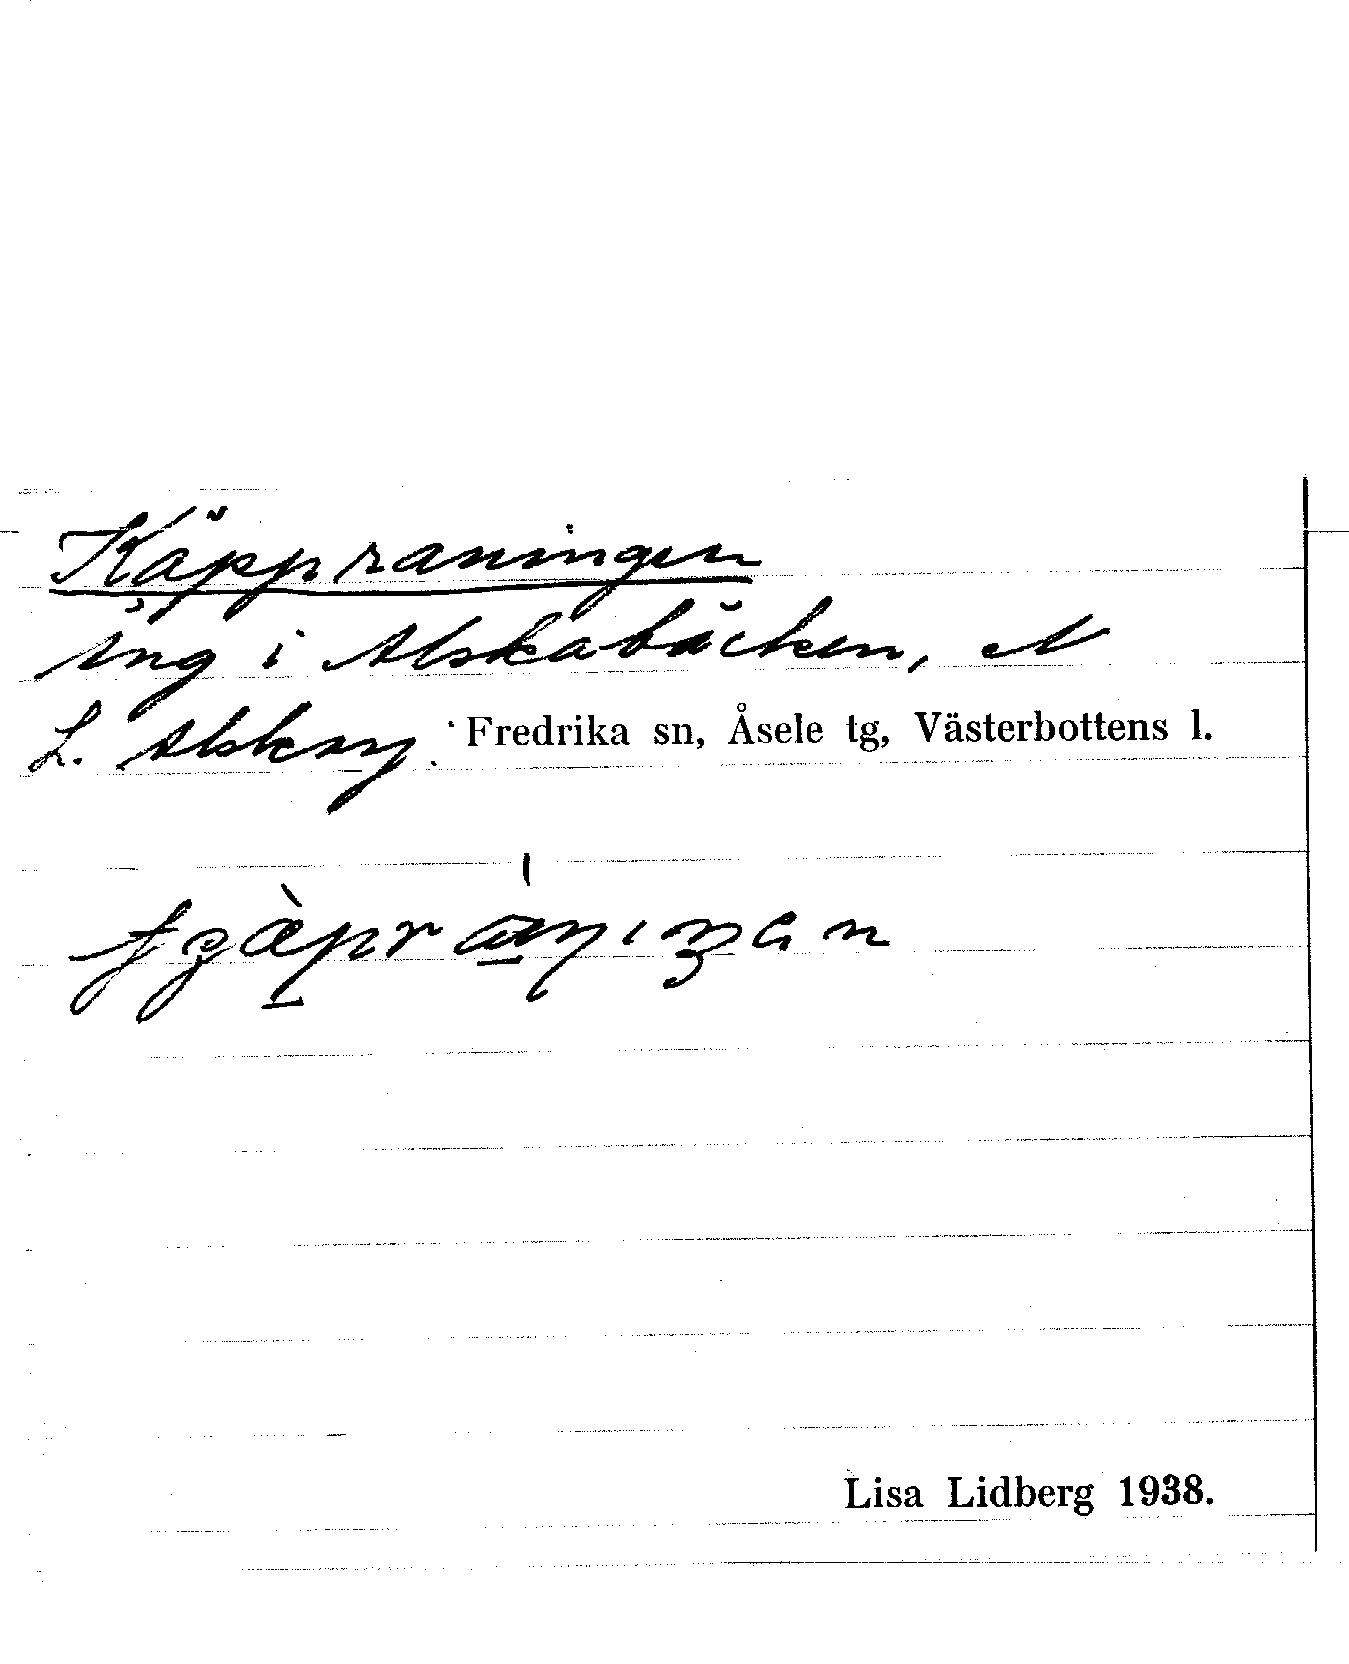 Käppraningen
äng i Alskabäcken, N
L. Alskog. Fredrika sn, Åsele tg, Västerbottens l.
Lisa Lidberg 1938.